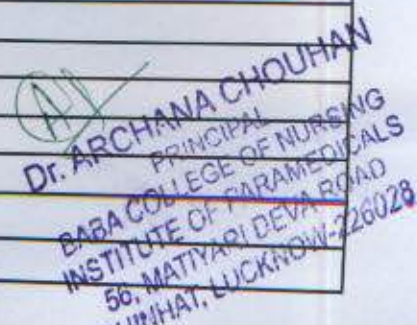 Dr. ARCHANA CHOUHAN
PRINCIPAL
BABA COLLEGE OF NURSING
INSTITUTE OF PARAMEDICALS
56, MATIYARI DEVA ROAD
LUCKNOW-226028